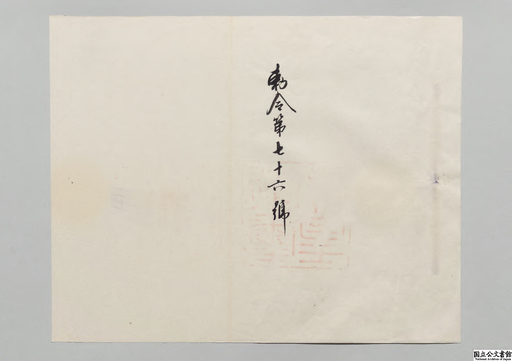 勅令第七十六號
国立公文書館
National Archives of Japan